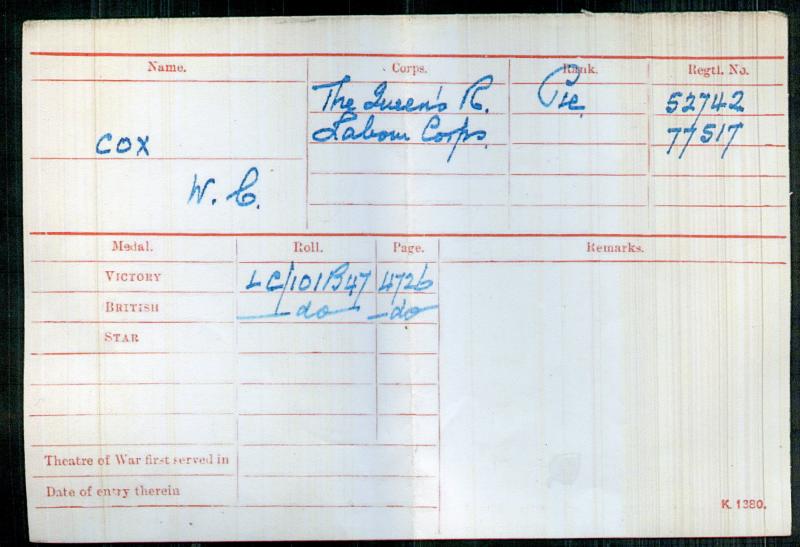 Name. Corps. Rank. Regtl. No.
The Queen's R. Pte 52742
COX Labour Corps. 77517
W. C.
Medal. Roll. Page. Remarks.
VICTORY LC/101B47 4726
BRITISH do do
STAR
Theatre of War first served in
Date of entry therein
K. 1380.